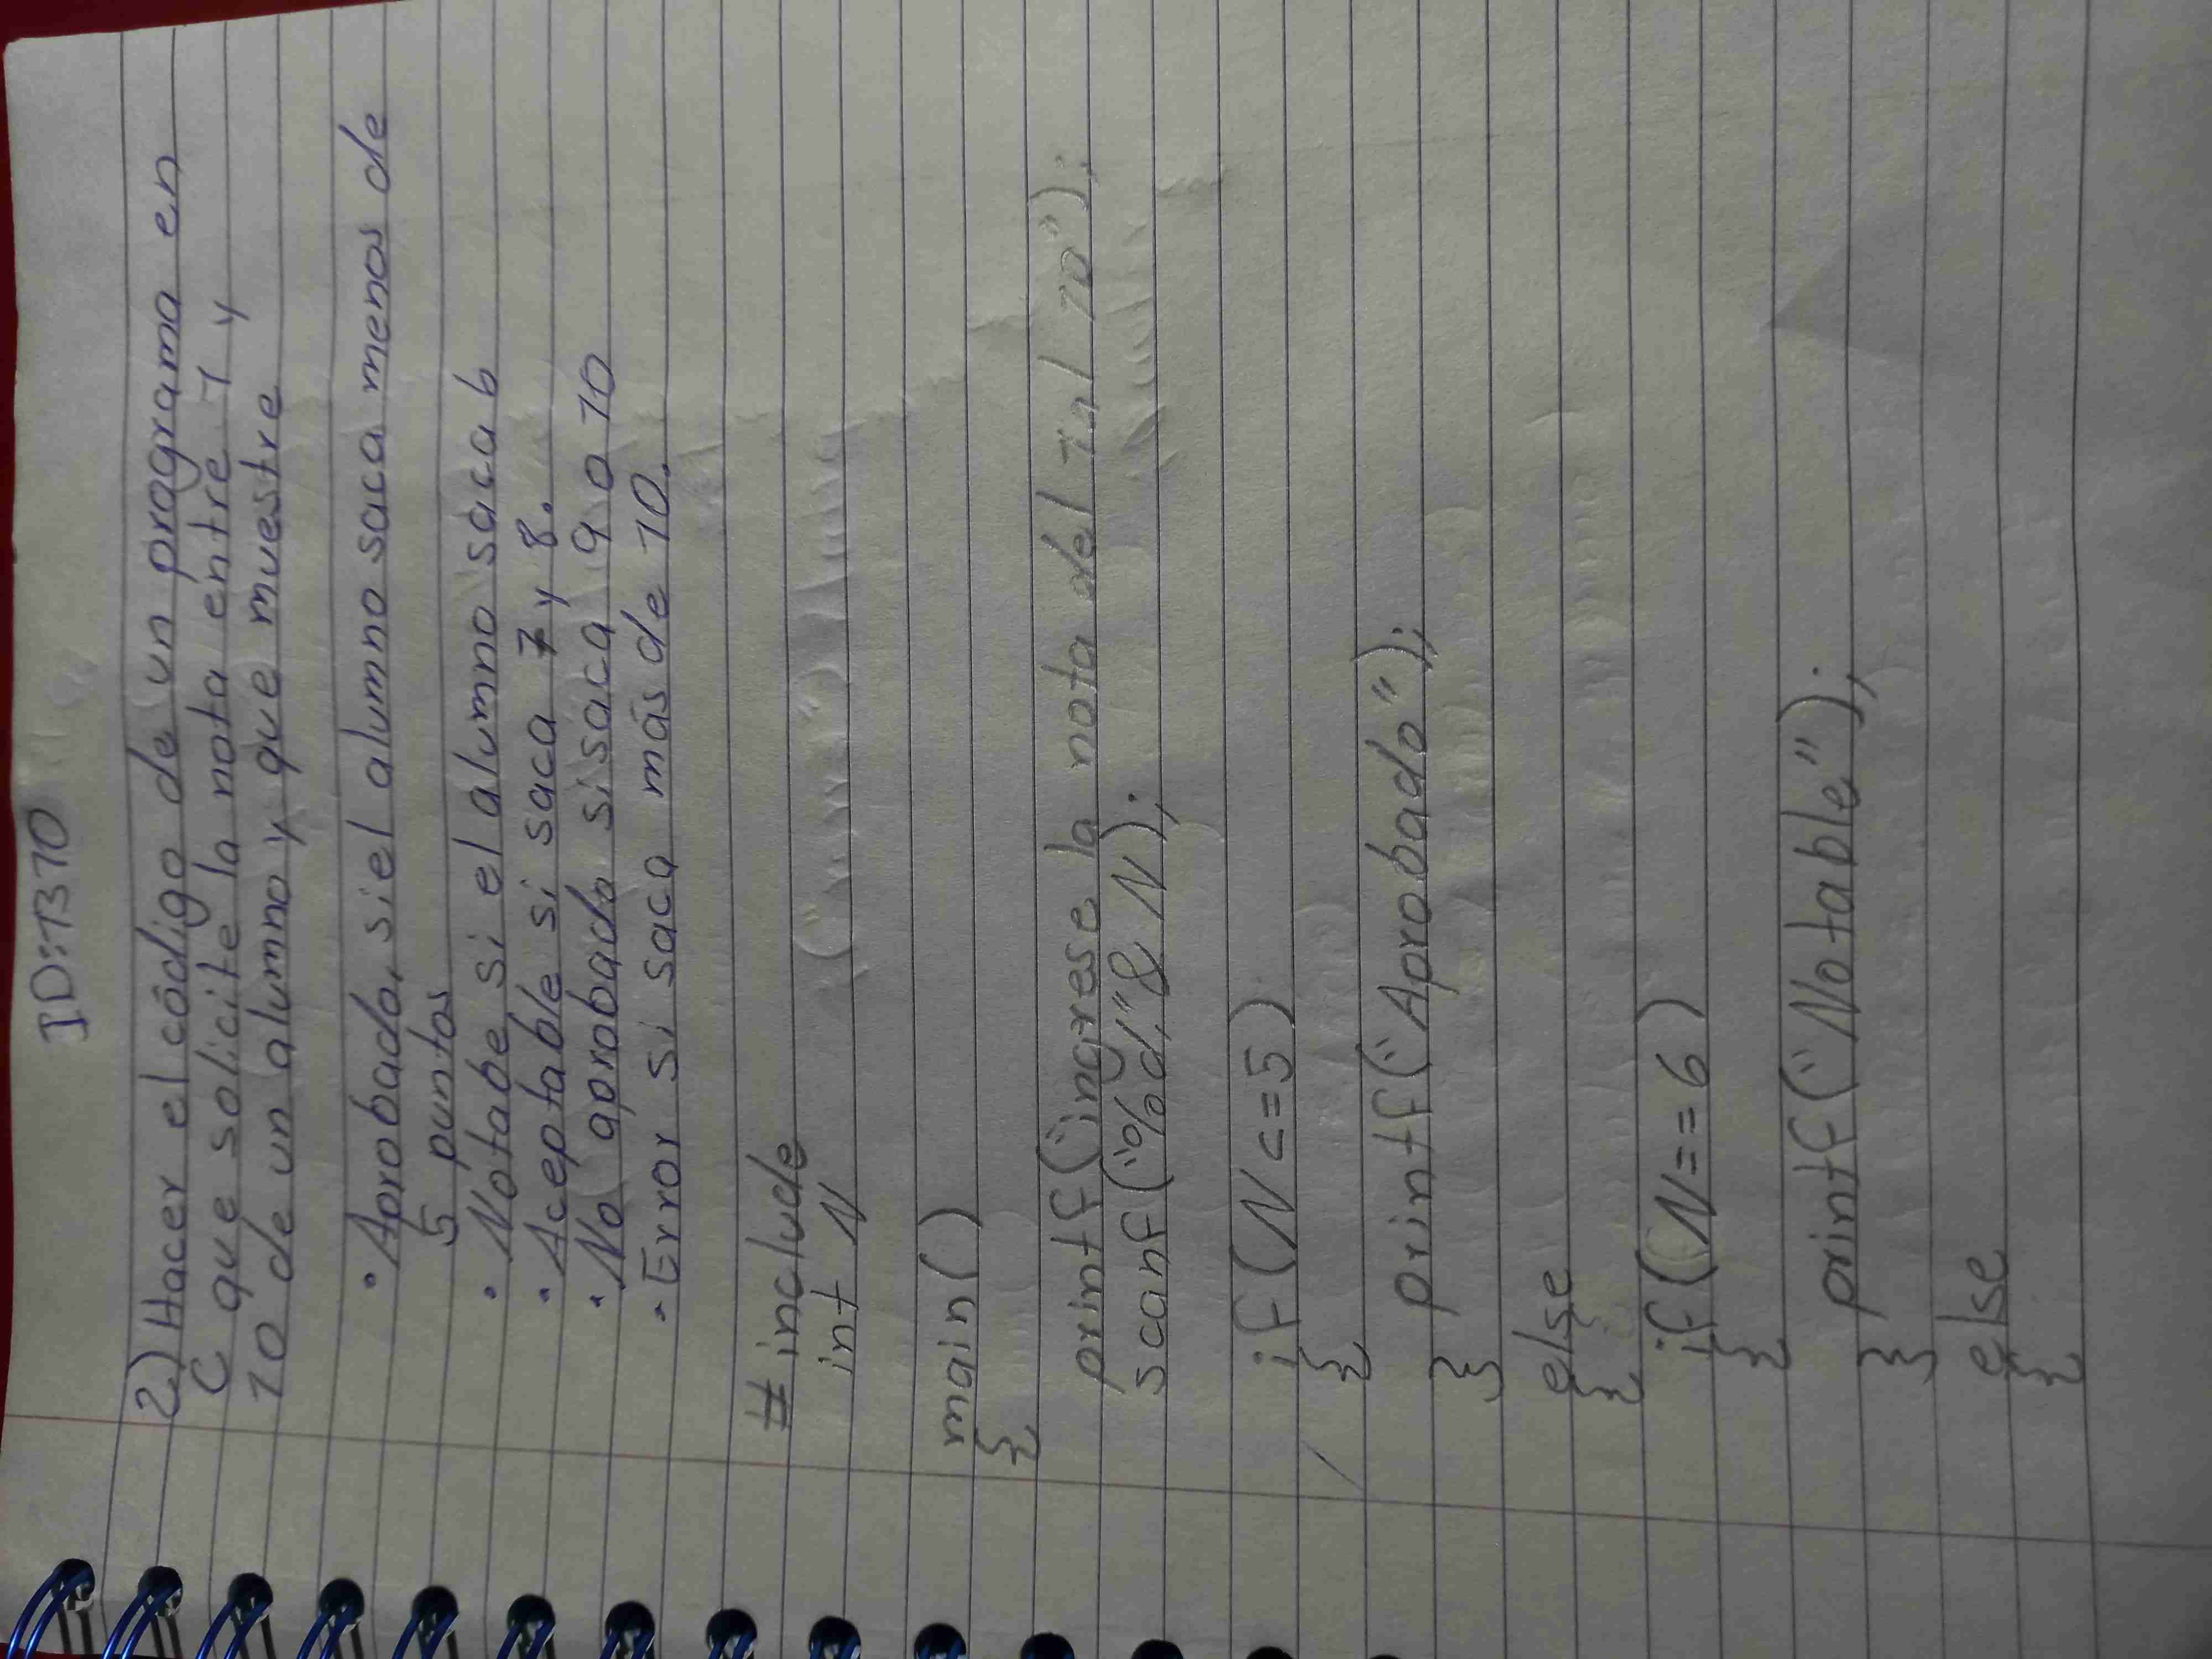 ID:B10
2) Hacer el código de un programa en
C que solicite la nota entre 1 y
10 de un alumno y que muestre
• Aprobado, si el alumno saca menos de
5 puntos
• Notabe si el alumno saca 6
• Aceptable si saca 7 y 8.
• No aprobado si saca 9 o 10
• Error si saca más de 10.
# include
int N
main()
{
printf("ingrese la nota del 1 al 10");
scanf("%d,"& N);
if(N<=5)
{
printf("Aprobado");
}
else
{
if(N==6)
{
printf("Notable");
}
else
{